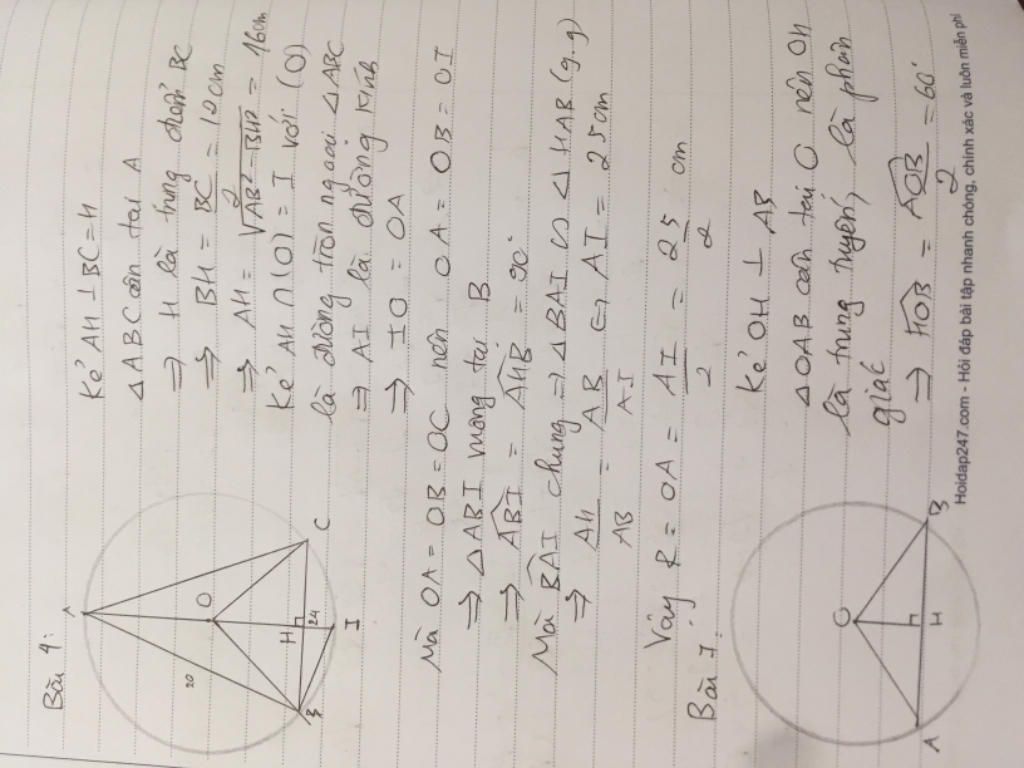 Bài 4:
A
20
O
H
24
B
C
I
Kẻ AH ⊥ BC = H
△ABC cân tại A
⇒ H là trung điểm BC
⇒ BH = BC/2 = 12cm
⇒ AH = √AB² - BH² = 16cm
Kẻ AH ∩ (O) = I với (O)
là đường tròn ngoại △ABC
⇒ AI là đường kính
⇒ IO = OA
Mà OA = OB = OC nên OA = OB = OI
⇒ △ABI vuông tại B
⇒ ABI = AHB = 90°
Mà BAI chung ⇒ △BAI ∽ △HAB (g.g)
⇒ AH/AB = AB/AI ⇔ AI = 25cm
Vậy R = OA = AI/2 = 25/2 cm
Bài 7:
O
A
H
B
Kẻ OH ⊥ AB
△OAB cân tại O nên OH
là trung tuyến, là phân
giác
⇒ HOB = AOB/2 = 60°
Hoidap247.com - Hỏi đáp bài tập nhanh chóng, chính xác và luôn miễn phí